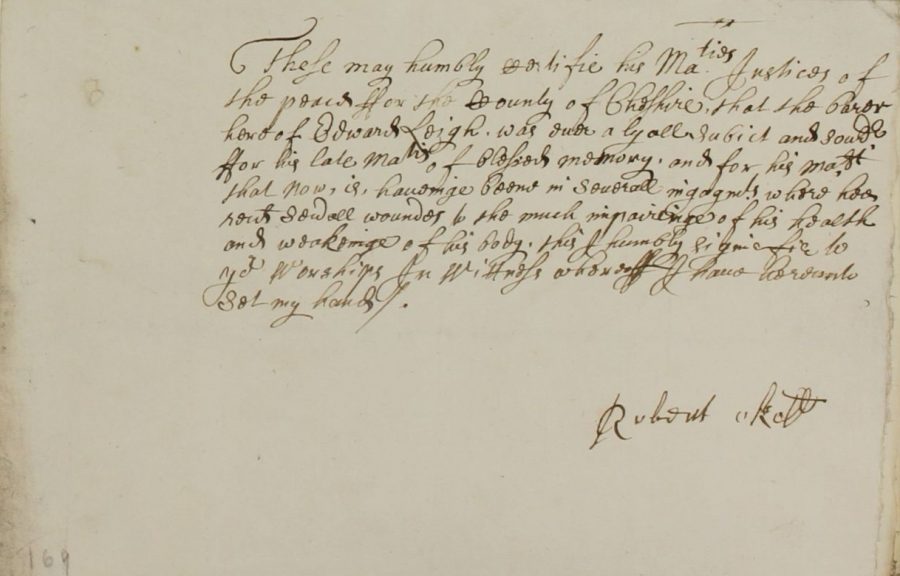 These may humbly certifie his Ma:ties Justices of
the peace ffor the County of Cheshire, that the barer
hereof Edward Leigh, was ever a lyall subict and
ffor his late Matis of blessed memory, and for his ma:tie
that now, is, haveinge beene in severall ingagmts where hee
severall woundes to the much impairinge of his health
and weakeninge of his body, this I humbly signiefie to
yor Worships In Wittness whereoff I have hereunto
set my hand /.
Robert
169